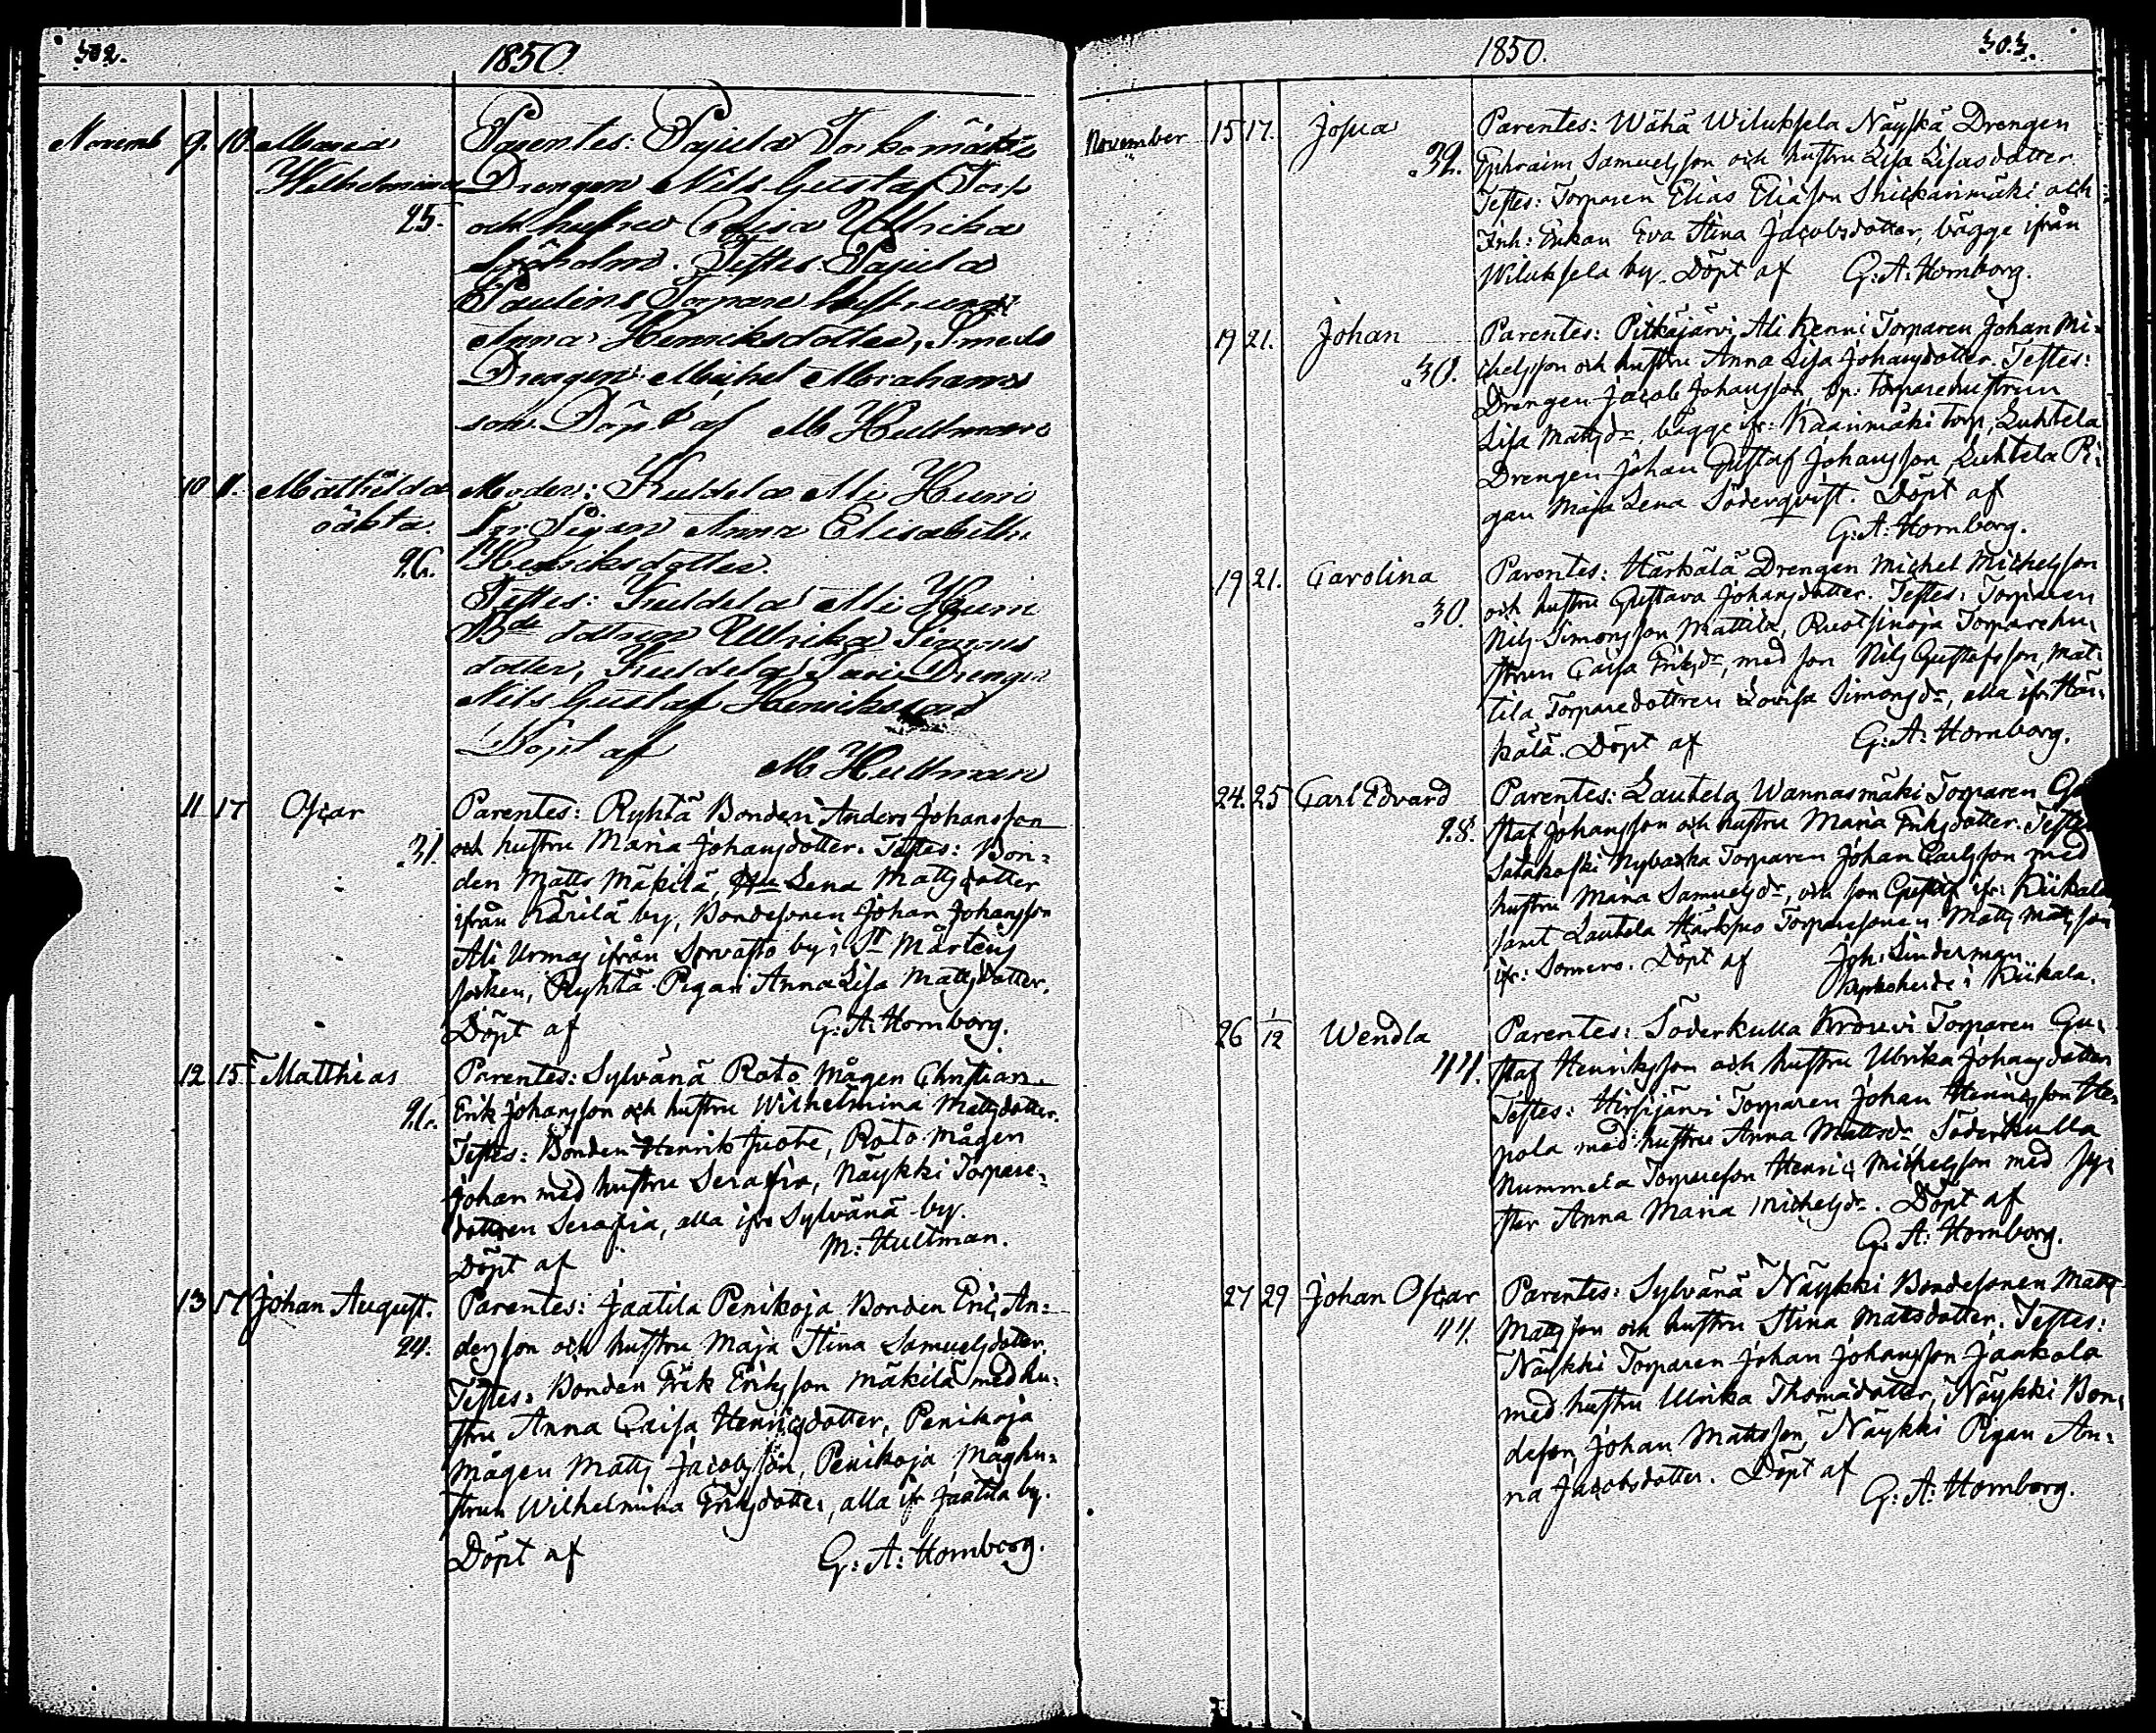 302.
1850.
Novemb 9. 10. Maria Parentes: Pajula Torkomäki
Wilhelmina Drengen Nils Gustaf Torp
25. och hustru Lisa Ullrika
Sjöholm. Testes: Pajula
Paulins Torpare hustrun
Anna Henriksdotter, Smeds
Drengen Michel Abrahams
son. Döpt af M Hultman
10 11. Mathilda Moder: Kuldela Ali Huni
oäkta. Pigan Anna Elisabeth
26. Henriksdotter.
Testes: Kuldela Ali Huni
Bde dottren Ullrika Simons
dotter, Kuldela Drengen
Nils Gustaf Henriksson
Döpt af
M Hultman
11 17 Oscar Parentes: Ryhtä Bonden Anders Johansson
31. och hustru Maria Johansdotter. Testes: Bon-
den Matts Mäkilä, Lena Mattsdotter
ifrån Kärilä by, Bondesonen Johan Johansson
Ali Urmas ifrån Sorvasto by i St Mårtens
socken, Ryhtä Pigan Anna Lisa Mattsdotter.
Döpt af G: A: Hornborg.
12 15 Matthias Parentes: Sylvänä Roto Mågen Christian
26. Erik Johansson och hustru Wilhelmina Mattsdotter.
Testes: Bonden Henrik Juote, Roto mågen
Johan med hustru Serafia, Näykki Torpare-
dottren Serafia, alla ifr. Sylvänä by.
Döpt af M: Hultman.
13 17 Johan August. Parentes: Jaatila Penikoja Bonden Eric An-
24. dersson och hustru Maja Stina Samuelsdotter.
Testes: Bonden Erik Ericsson Mäkilä med hu-
stru Anna Caisa Henricsdotter, Penikoja
mågen Matts Jacobsson, Penikoja Måghu-
strun Wilhelmina Ericsdotter, alla ifr Jaatila by.
Döpt af G: A: Hornborg.
1850.
303.
November 15 17. Josua Parentes: Wähä Wiluksela Näyskä Drengen
32. Ephraim Samuelsson och hustru Lisa Lisasdotter
Testes: Torparen Elias Eliasson Snickarinmäki och
Inh: Enkan Eva Stina Jacobsdotter, bägge ifrån
Wiluksela by. Döpt af G: A: Hornborg.
19 21. Johan Parentes: Pitkäjärvi Ali Kenni Torparen Johan Mi-
30. chelsson och hustru Anna Lisa Johansdotter. Testes:
Drengen Jacob Johansson, Torparehustrun
Lisa Mattsdr, bägge ifr: Kaanmäki torp, Luhtela
Drengen Johan Gustaf Johansson, Luhtela Pi-
gan Maja Lena Söderqvist. Döpt af
G: A: Hornborg.
19 21. Carolina Parentes: Härkälä Drengen Michel Michelsson
30. och hustru Gustava Johansdotter. Testes: Torparen
Nils Simonsson Mattila, Ruotsinoja Torparehu-
strun Caisa Ericsdr, med son Nils Gustafsson, Mat-
tila Torparedottren Lovisa Simonsdr, alla ifr. Här-
kälä. Döpt af G: A: Hornborg.
24. 25 Carl Edvard Parentes: Lautela Wannasmäki Torparen Gu
28. staf Johansson och hustru Maria Ericsdotter. Testes
Satakoski Nybacka Torparen Johan Carlsson med
hustru Maria Samuelsdr, och son Gustaf ifr: Kiikala,
samt Lautela Härkpes Torparesonen Matts Mattsson
ifr: Somero. Döpt af Joh: Linderman
Kyrkoherde i Kiikala.
26 1/12 Wendla Parentes: Söderkulla Krouvi Torparen Gu-
44. staf Henriksson och hustru Ulrika Johansdotter
Testes: Hirsijärvi Torparen Johan Henricsson He-
pola med hustru Anna Mattsdr Söderkulla
Nummela Torpareson Henric Michelsson med sy-
ster Anna Maria Michelsdr. Döpt af
G: A: Hornborg.
27 29 Johan Oscar Parentes: Sylvänä Näykki Bondesonen Matts
44. Mattsson och hustru Stina Mattsdotter. Testes:
Näykki Torparen Johan Johansson Jaakola
med hustru Ulrika Thomasdotter, Näykki Bon-
deson Johan Mattsson, Näykki Pigan An-
na Jacobsdotter. Döpt af
G: A: Hornborg.